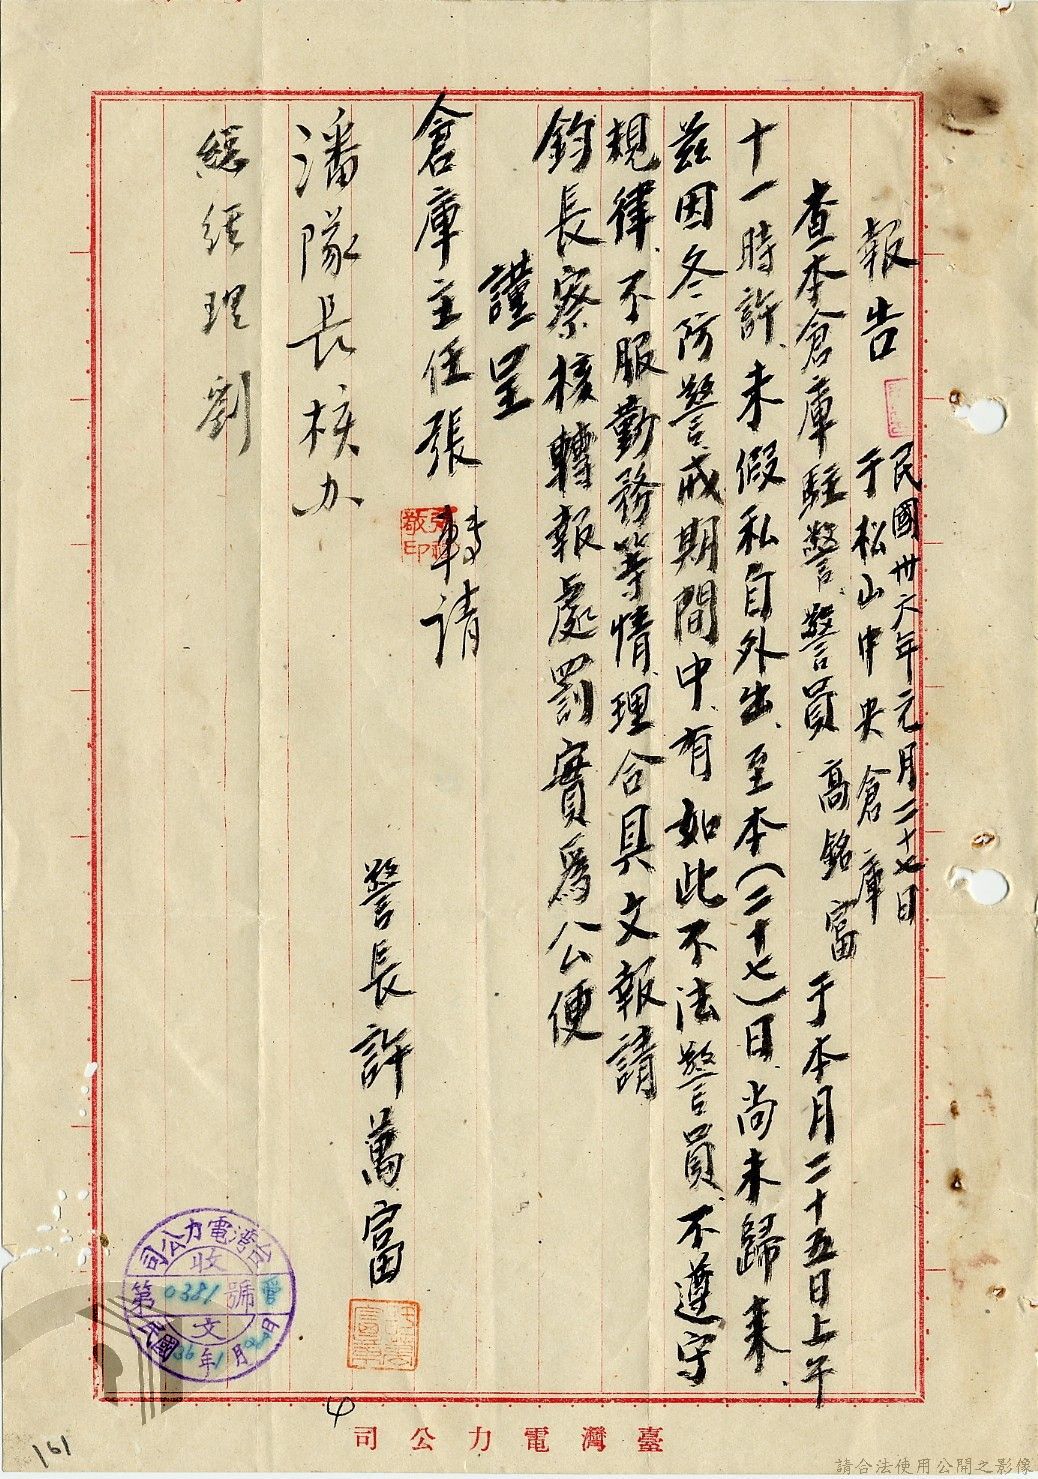 報告
民國卅六年元月二十七日
于松山中央倉庫
查本倉庫駐警、警員高銘富于本月二十五日上午
十一時許、未假私自外出、至本(二十七)日、尚未歸來、
茲因冬防警戒期間中、有如此不法警員、不遵守
規律、不服勤務等情、理合具文報請
鈞長察核轉報處罰實為公便
謹呈
倉庫主任張 轉請
警長許萬富
潘隊長核办
總經理劉
台灣電力公司
收文
第0381號
民國36年1月日
臺灣電力公司
4
161
請合法使用公開之影像